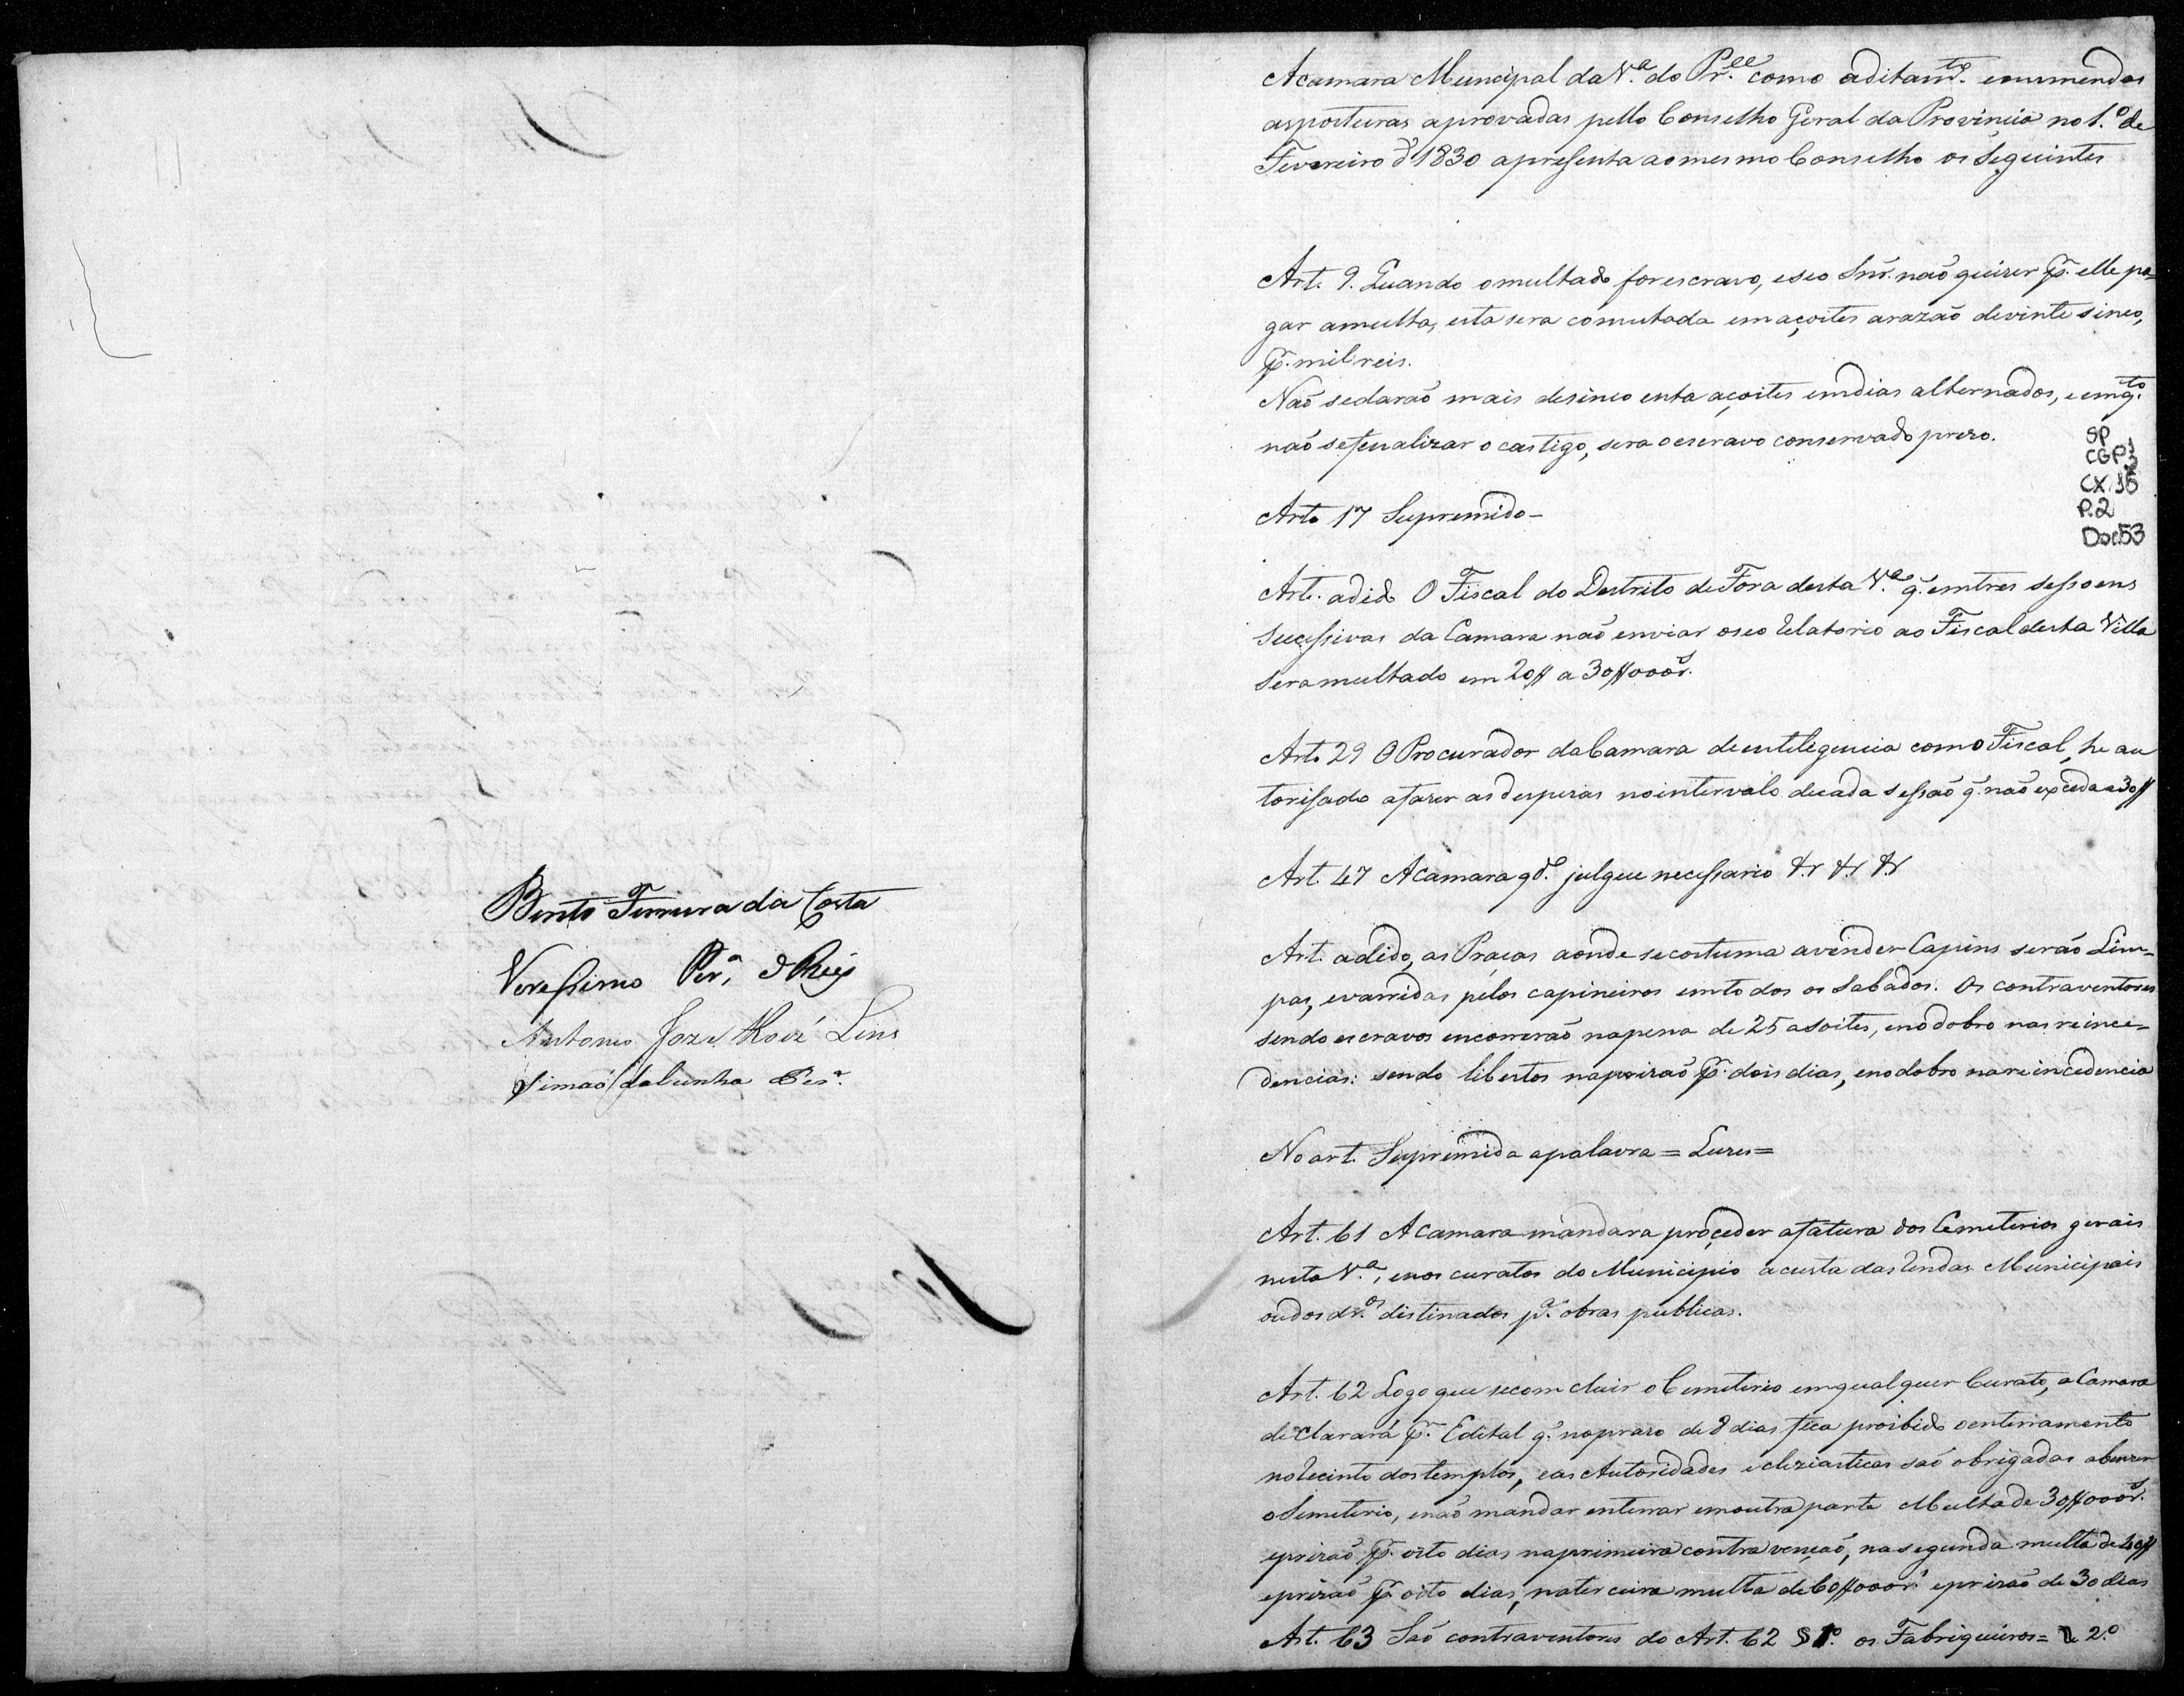 Bento Ferreira da Costa
Veressimo Per.ª d Reis
Antonio Joze Roiz Lins
Simaõ da Cunha Per.
Acamara Muncipal da V.ª do Pr.ee como aditam.to enumendas
asposturas aprovadas pello Conselho Geral da Provincia no 1.º de
Fevereiro d' 1830 apresenta aomesmo Conselho os Seguintes
Art. 9. Quando omultado for escravo, eseo Snr. naõ quizer q̃. elle pa=
gar amulta, esta sera comutada em açoites arazaõ devinte sinco,
p̃. mil reis.
Naõ sedaraõ mais desinco enta açoites emdias alternados, eemq.to
naõ sefenalizar o castigo, sera oescravo conservado prezo.
SP
CGP3
CX 15
P.2
Doc.53
Art. 17 Supremido-
Art. adido O Fiscal do Destrito de Fora desta V.ª q̃. emtres sessoens
Sucessivas da Camara naõ enviar oseo relatorio ao Fiscal desta Villa
Seramultado em 20$ a 30$000r.s
Art. 29 O Procurador daCamara de entelegencia como Fiscal, he au
torisado afazer as despezas nointervalo decada sessaõ q̃. naõ exceda a 30$
Art. 47 Acamara qd.º julgue necessario &r &r &r
Art. adido, as Praças aonde secostuma avender Capins seraõ Lim-
pas, evarridas pelos capineiros emtodos os Sabados. Os contraventores
sendo escravos encorreraõ napena de 25 asoites, enodobro nas reince=
dencias: sendo libertos naprizaõ p̃. dois dias, enodobro nareincedencia
No art. Supremida apalavra = Luzes=
Art. 61 Acamara mandara proçeder afatura dos Cemeterios gerais
nesta V.ª, enos curatos do Municipio acusta das rendas Municipais
oudos dr.os distinados p.ª obras publicas.
Art. 62 Logo que secom cluir oCemeterio emqualquer Curato, aCamara
declarará p̃. Edital q̃. noprazo de 8 dias fica proibido oenterramento
norecinto dos templos, eas Autoridades ecleziasticas saõ obrigadas abenzer
oSemeterio, enaõ mandar enterrar emoutra parte Multa de 30$000r.s
eprizaõ p̃. oito dias naprimeira contra vençaõ, na segunda multa de 40$
eprizaõ p̃. oito dias, naterceira multa de 60$000r.s eprizaõ de 30 dias
Art. 63 Saõ contraventores do Art. 62 § 1.º os Fabriqueiros= § 2.º